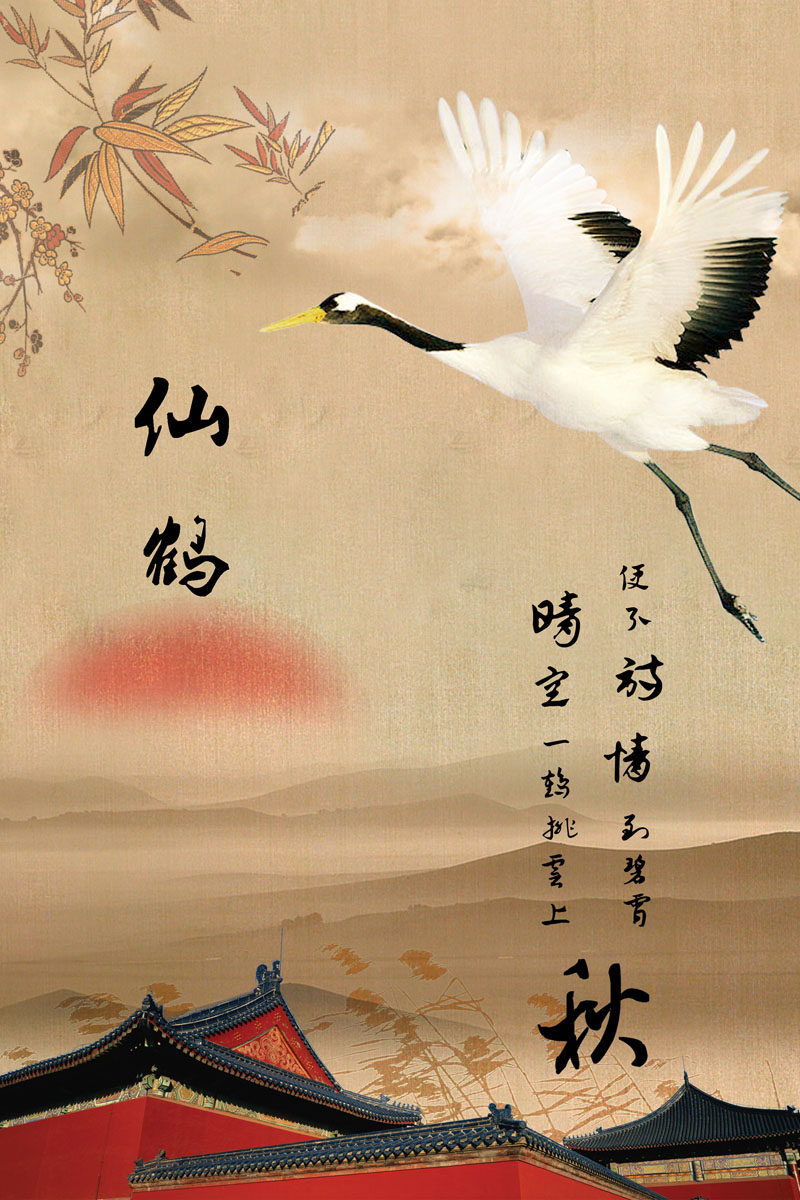 仙鹤
晴空一鹤排雲上
便引詩情到碧霄
秋